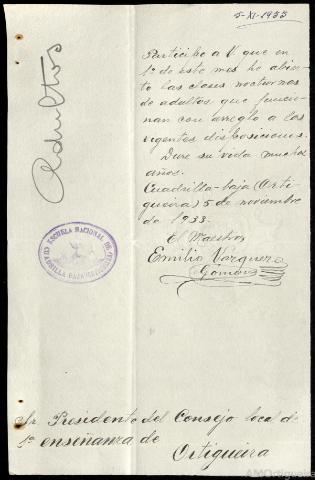 5-XI-1933
Adultos
Participo a V. que en
1º de este mes he abier-
to las clases nocturnas
de adultos, que funcio-
nan con arreglo a las
vigentes disposiciones.
Dure su vida muchos
años.
Cuadrilla-baja (Orti-
gueira) 5 de noviembre
de 1933.
El Maestro,
Emilio Vázquez
ESCUELA NACIONAL DE
CUADRILLA BAJA (ORTIGUEIRA)
Sr. Presidente del Consejo local de
1ª enseñanza de Ortigueira
AMOrtigueira